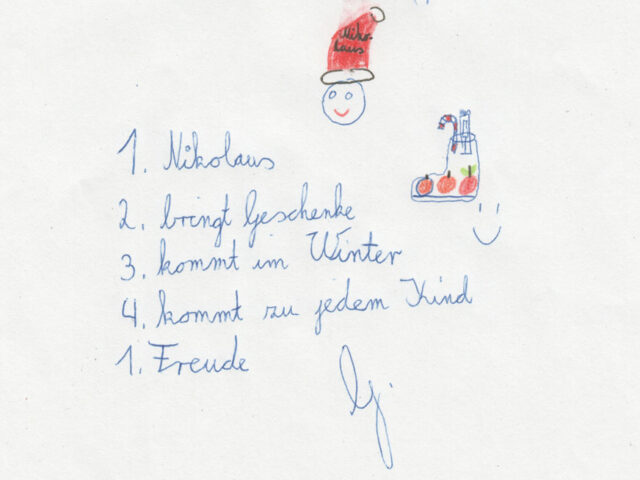 Niko-
laus
1. Nikolaus
2. bringt Geschenke
3. kommt im Winter
4. kommt zu jedem Kind
1. Freude